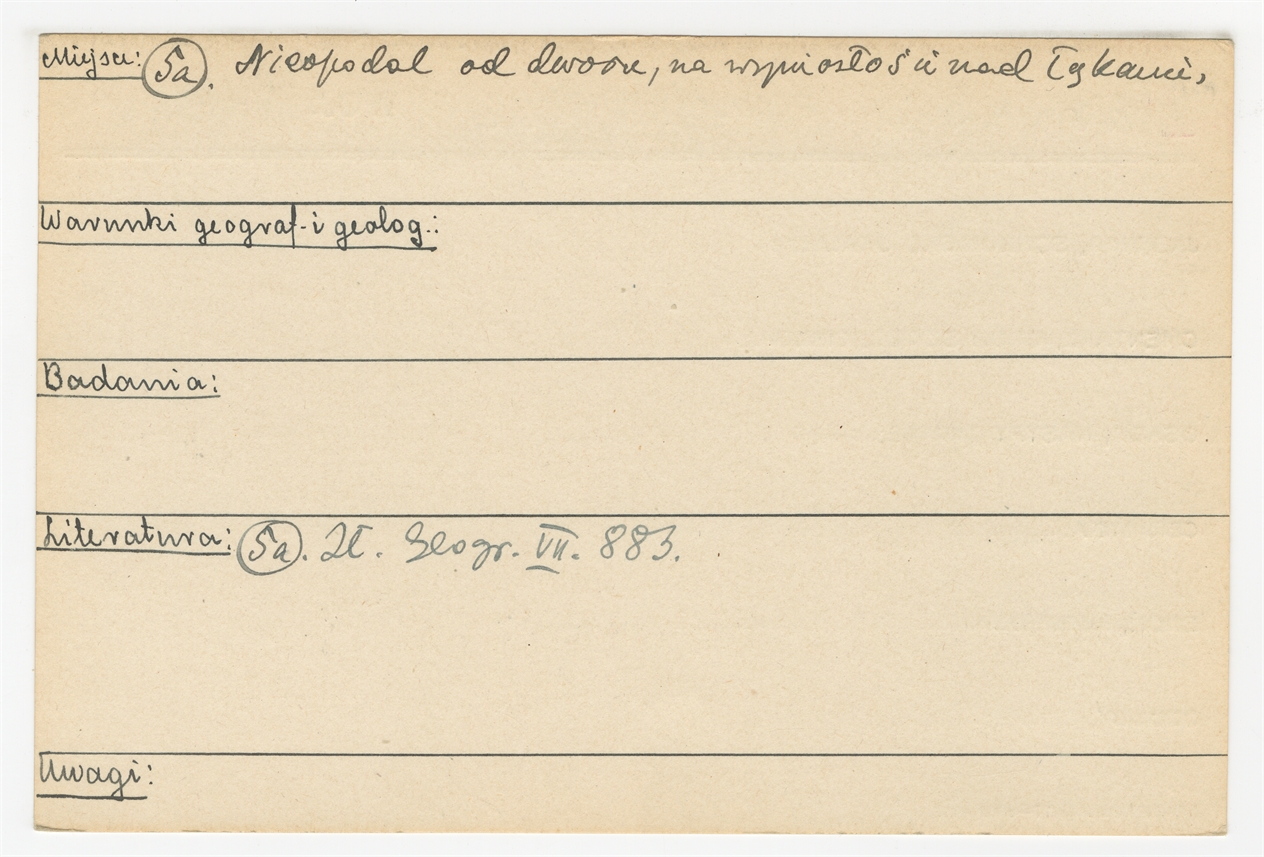 Miejsce: 5a. Nieopodal od dworu, na wyniosłości nad łąkami,
Warunki geograf. i geolog.:
Badania:
Literatura: 5a. Sł. Geogr. VII. 883.
Uwagi: